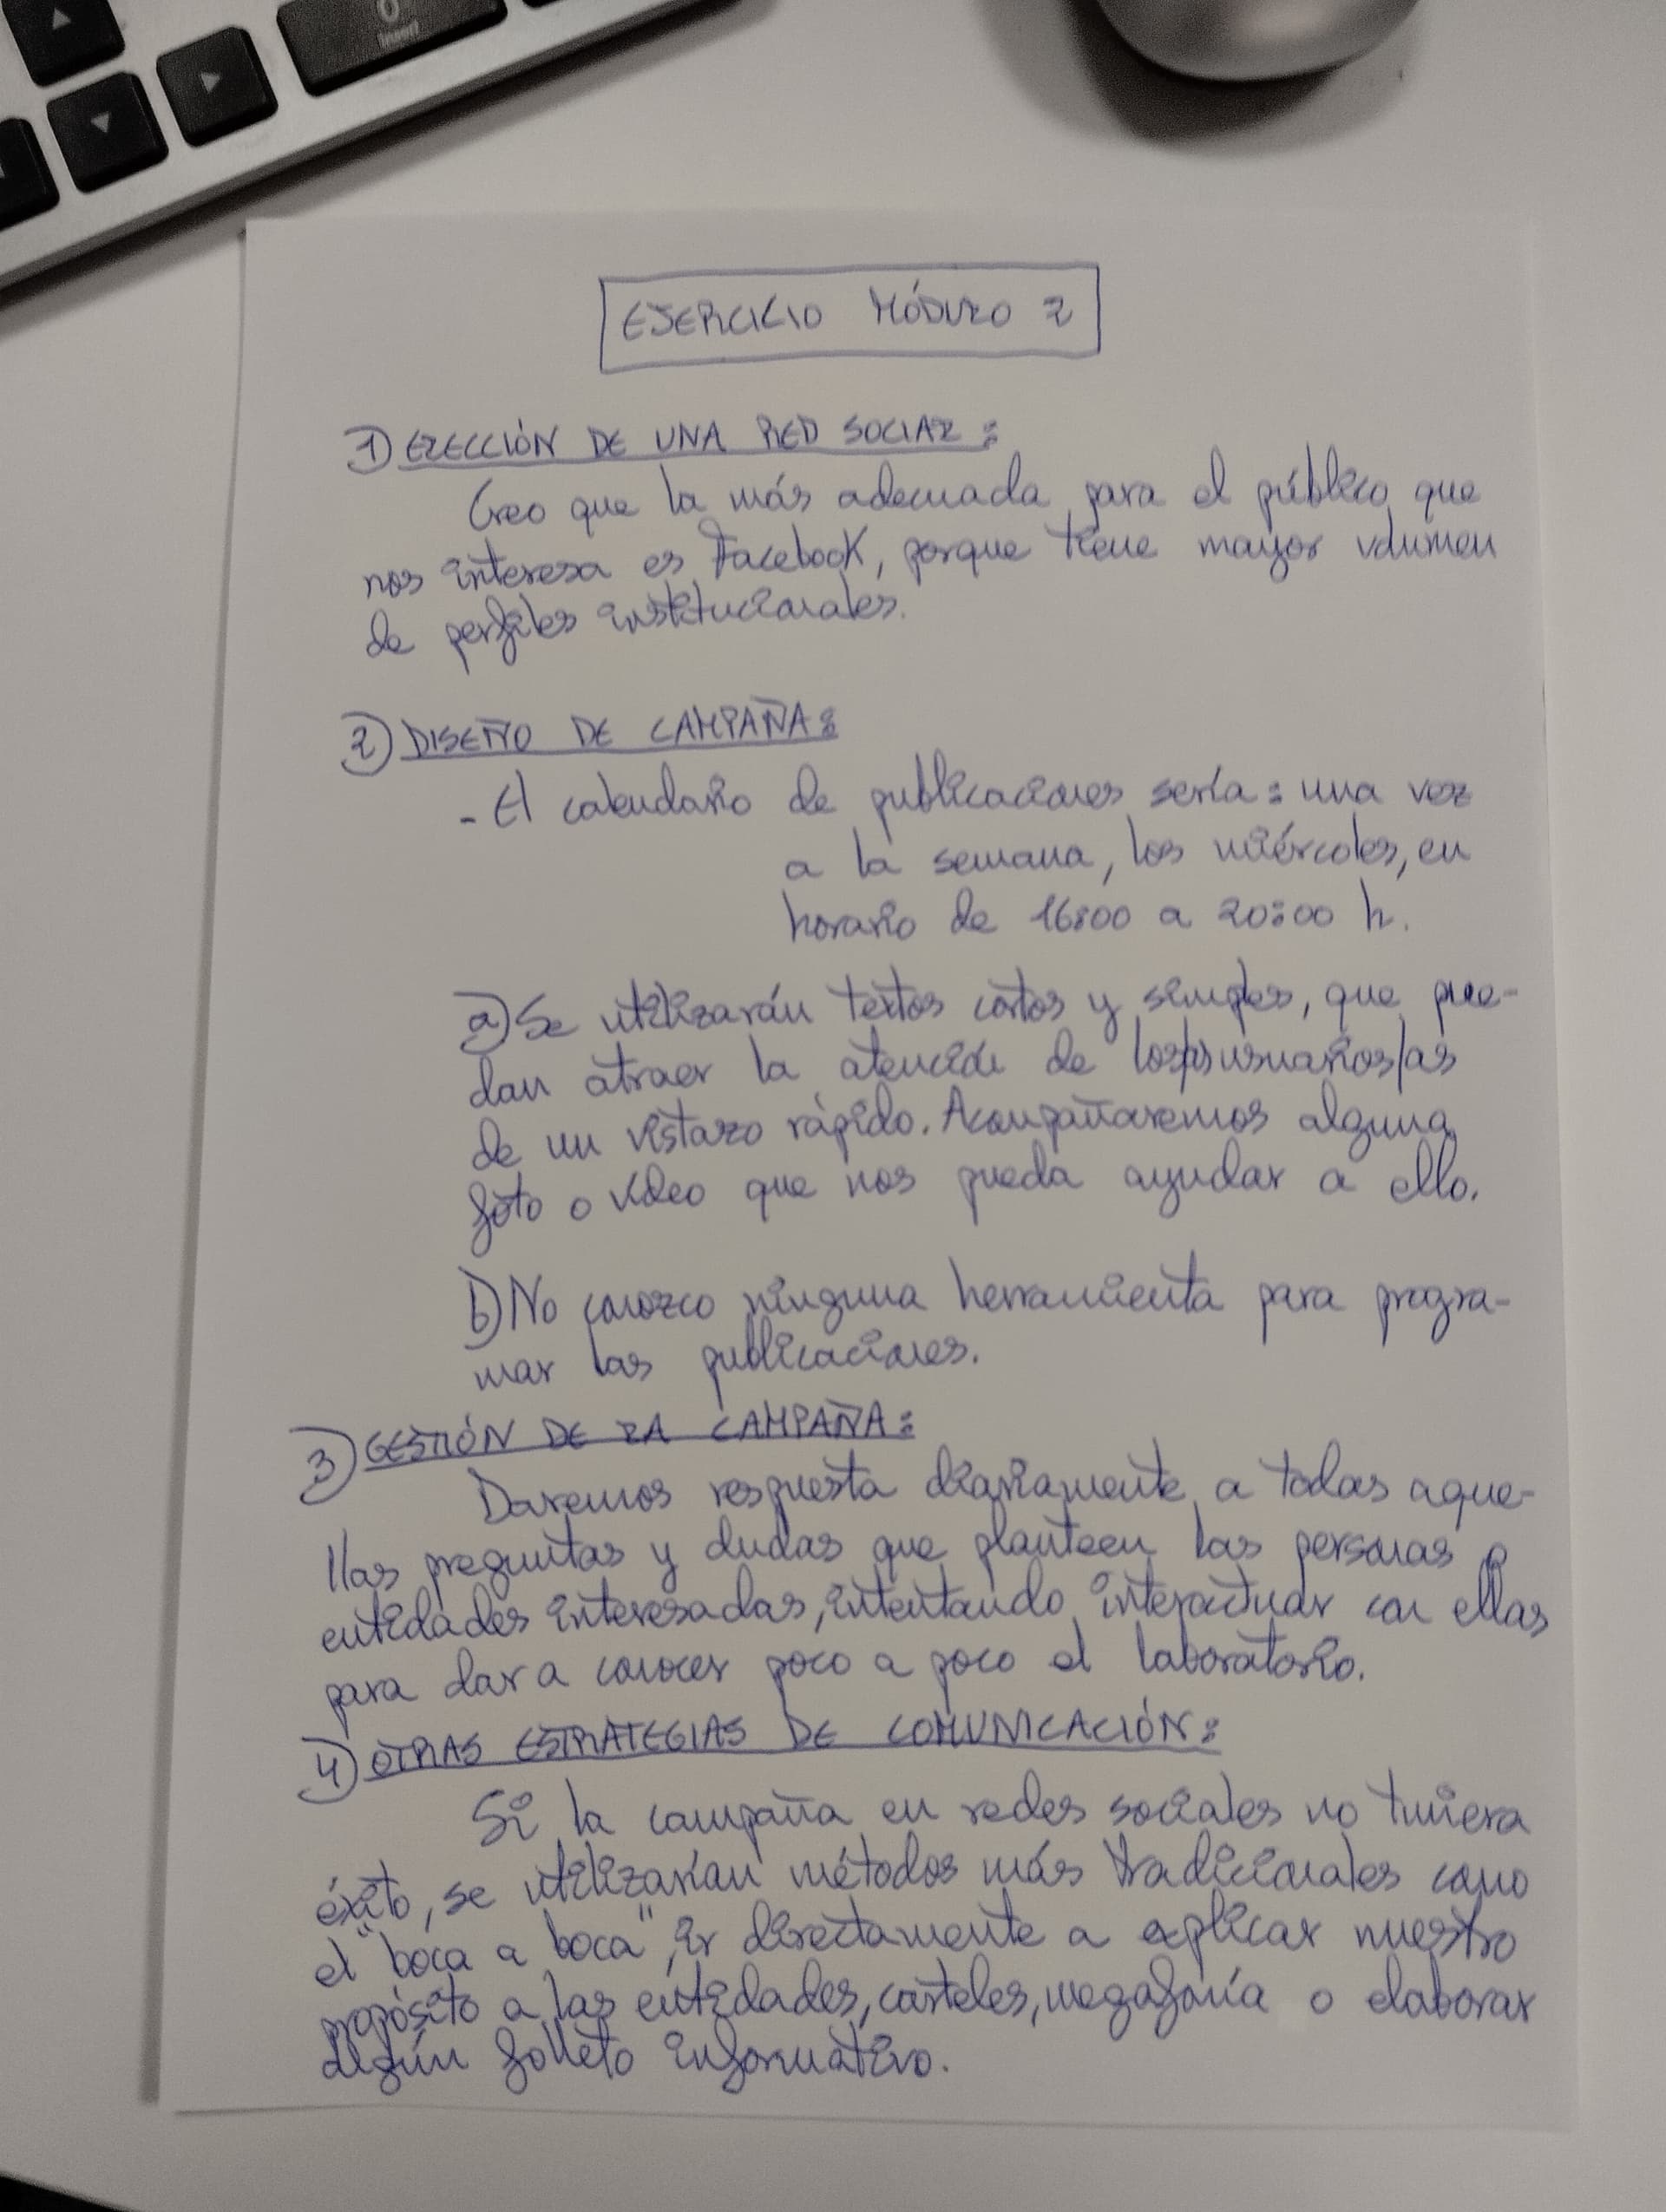 0
Insert
EJERCICIO MÓDULO 2
1) ELECCIÓN DE UNA RED SOCIAL:
Creo que la más adecuada para el público que
nos interesa es Facebook, porque tiene mayor volumen
de perfiles institucionales.
2) DISEÑO DE CAMPAÑA:
- El calendario de publicaciones sería: una vez
a la semana, los miércoles, en
horario de 16:00 a 20:00 h.
a) Se utilizarán textos cortos y simples, que pue-
dan atraer la atención de los/as usuarios/as
de un vistazo rápido. Acompañaremos alguna
foto o vídeo que nos pueda ayudar a ello.
b) No conozco ninguna herramienta para progra-
mar las publicaciones.
3) GESTIÓN DE LA CAMPAÑA:
Daremos respuesta diariamente a todas aque-
llas preguntas y dudas que planteen las personas o
entidades interesadas, intentando interactuar con ellas
para dar a conocer poco a poco el laboratorio.
4) OTRAS ESTRATEGIAS DE COMUNICACIÓN:
Si la campaña en redes sociales no tuviera
éxito, se utilizarían métodos más tradicionales como
el "boca a boca", ir directamente a explicar nuestro
propósito a las entidades, carteles, megafonía o elaborar
algún folleto informativo.